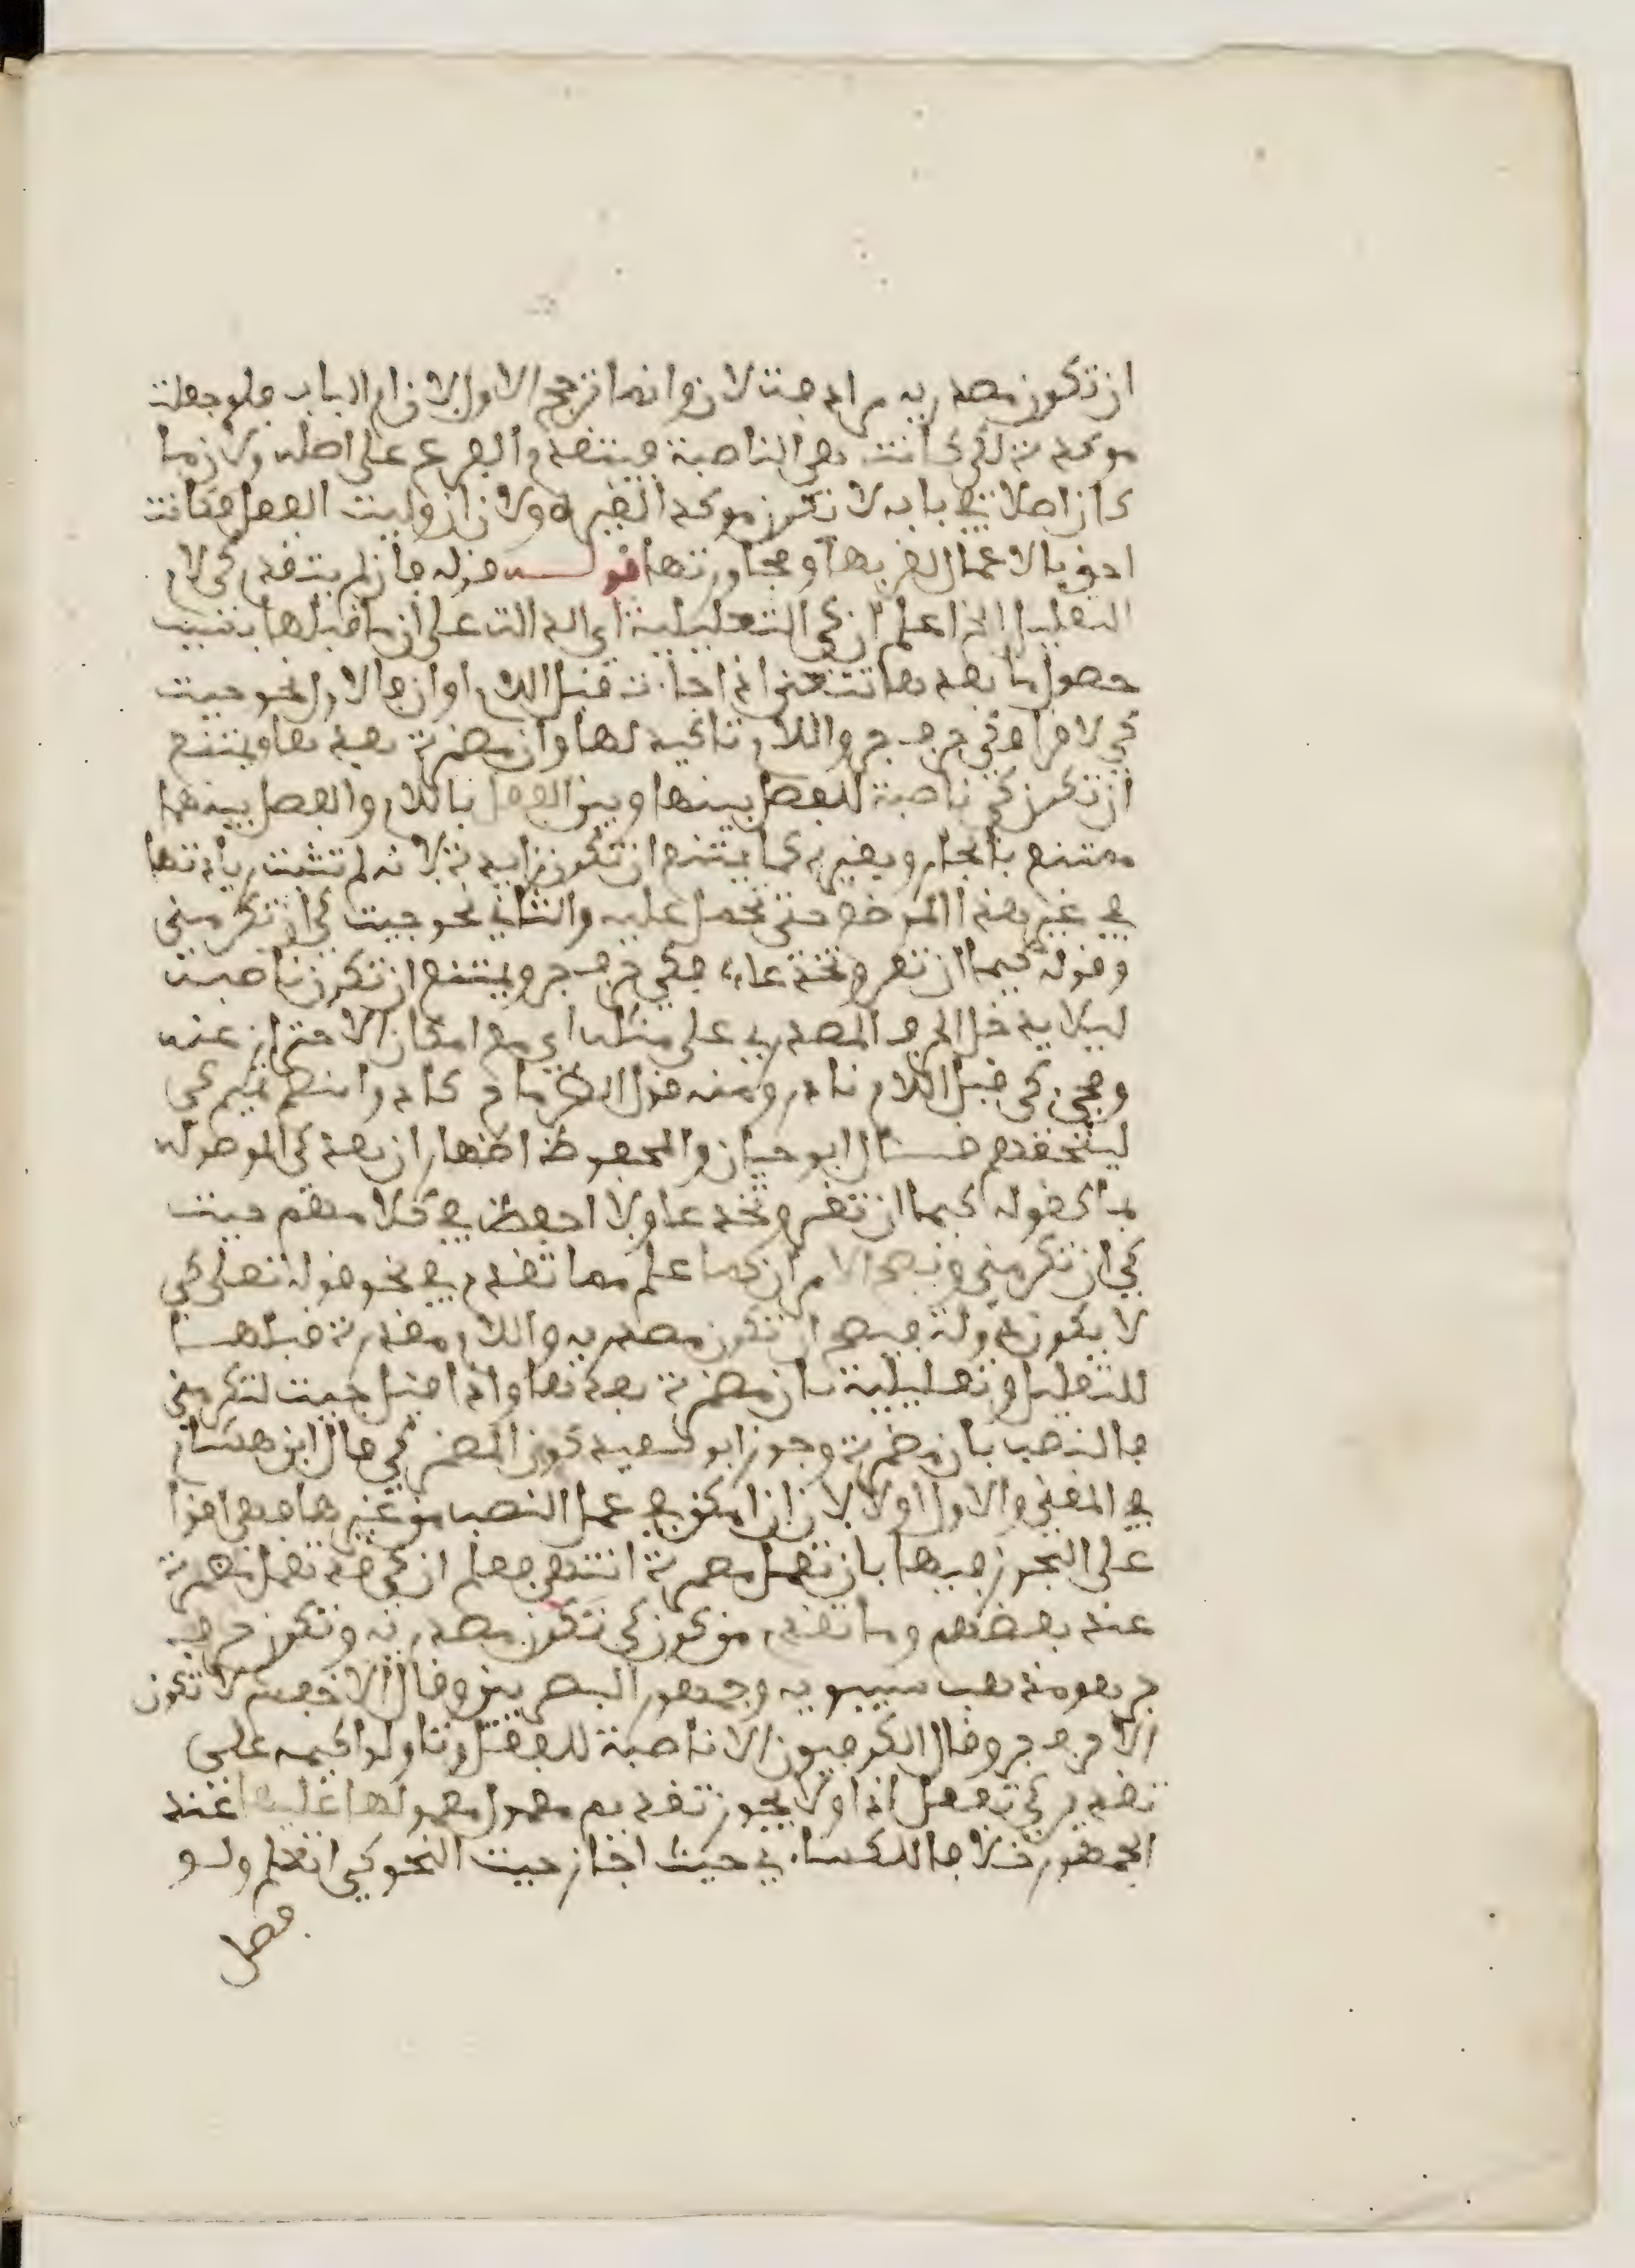 ان تكون مصدرية مرادفة لان وانما ترجح الاول لان ان ام الباب فلو جعلت
موكدة لكي كانت هي الناصبة فيتقدم الفرع على اصله ولان ما
كان اصلا في بابه لا تكون موكدا لغيره ولان ان وليت الفعل فكانت
احق بالاعمال لقربها ومجاورتها قولــه قوله فان لم يتقدم كي لام
التعليل الخ اعلم ان كي التعليلية اي الدالة على ان ما قبلها بسبب
حصول ما بعدها تتعين اذا جات قبل اللام او ان فالاول نحو جيت
كي لاقرا فكي حرف جر واللام تاكيد لها وان مضمرة بعدها ويمتنع
ان تكون كي ناصبة للفصل بينها وبين الفعل باللام والفصل بينهما
ممتنع بالجار وبغيره كما يمتنع ان تكون زايدة لانه لم تثبت زيادتها
في غير هذا الموضع حتى تحمل عليه والثاني نحو جيت كي ان تكرمني
وقوله كيما ان تغر وتخدعا، فكي حرف جر ويمتنع ان تكون ناصبة
ليلا يدخل الحرف المصدري على مثله اي مع امكان الاحتراز عنه
ومجيء كي قبل اللام نادر ومنه قول الطرماح كادوا بنصر تميم كي
ليلحقهم قــال ابو حيان والمحفوظ اظهار ان بعد كي الموصولة
بما كقوله كيما ان تغر وتخدعا ولا احفظ في كلامهم جيت
كي ان تكرمني ويصح الامران كما علم مما تقدم في نحو قوله تعلى كي
لا يكون دولة فيصح ان تكون مصدرية واللام مقدرة قبلها
للتعليل وتعليلية بان مضمرة بعدها واذا قيل جيت لتكرمني
فالنصب بان مضمرة وجوز ابو سعيد كون المضمر كي قال ابن هشام
في المغني والاول اولا لان ان امكن في عمل النصب من غيرها فهي اقوا
على التجوز فيها بان تعمل مضمرة انتهى فعلم ان كي قد تعمل مضمرة
عند بعضهم وما تقدم من كون كي تكون مصدرية وتكون حرف
جر هو مذهب سيبويه وجمهور البصريين وقال الاخفش لا تكون
الا حرف جر وقال الكوفيون الا ناصبة للفعل وتاولوا كيمه على
تقدير كي تفعل اذا ولا يجوز تقديم معمول معمولها عليها عند
الجمهور خلافا للكساءي حيث اجاز جيت النحو كي اتعلم ولو
فصل